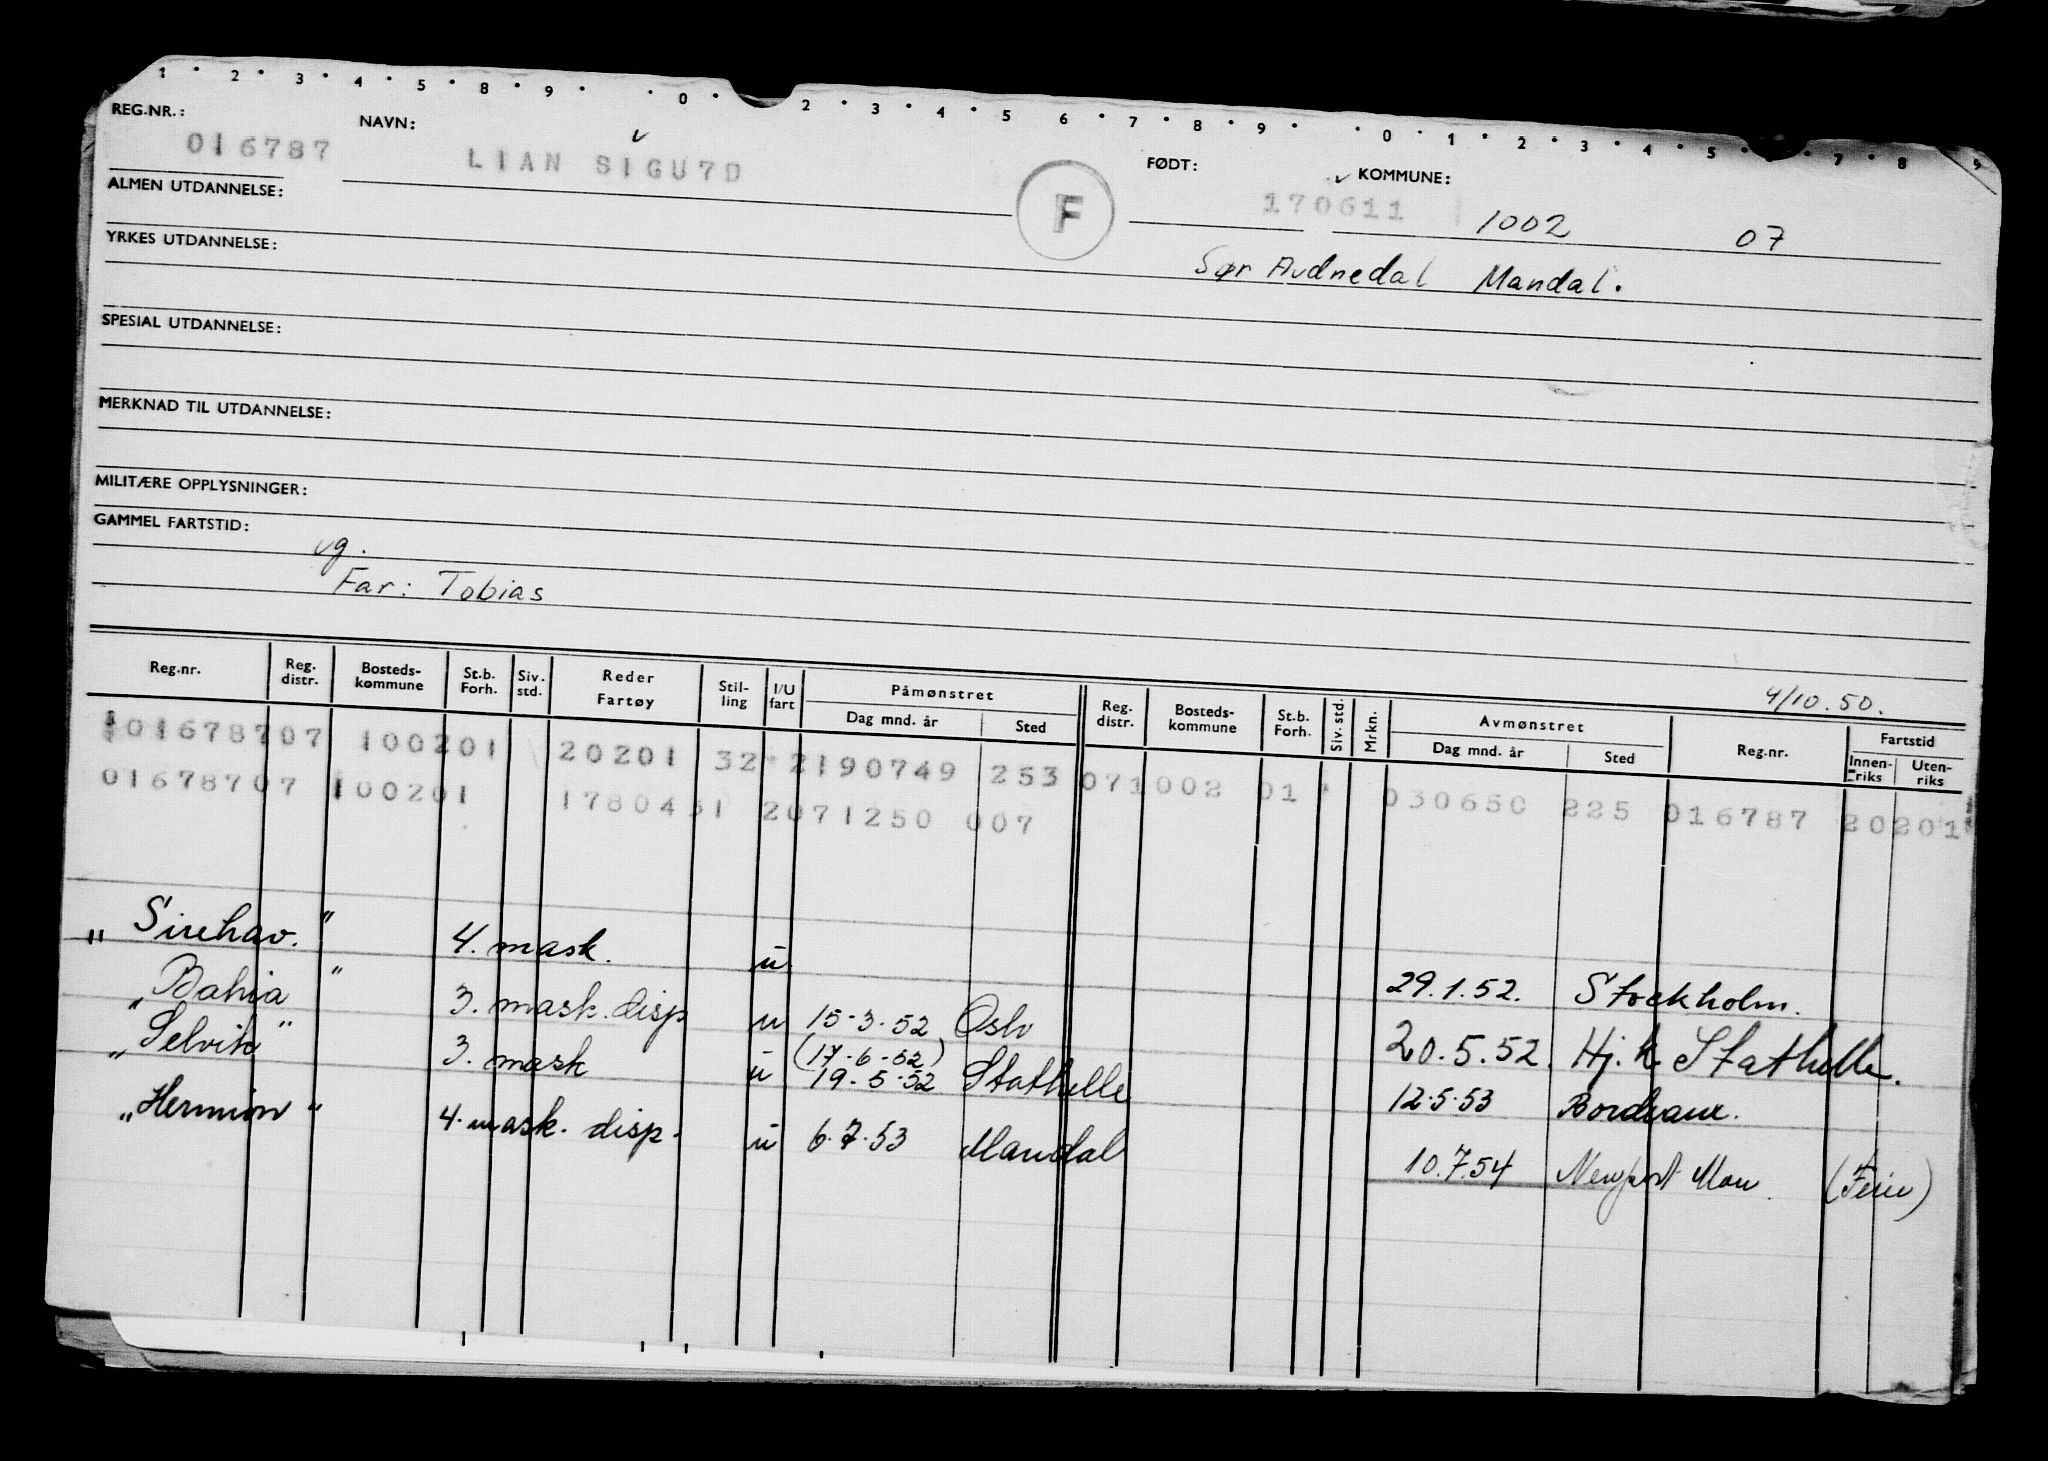 1 2 3 4 5 8 9 0 2 3 4 5 6 7 8 9 0 1 2 3 4 5 7 8 9
REG.NR.: NAVN: FØDT: KOMMUNE:
016787 LIAN SIGU7D F 170611 1002 07
ALMEN UTDANNELSE:
Sør Audnedal Mandal.
YRKES UTDANNELSE:
SPESIAL UTDANNELSE:
MERKNAD TIL UTDANNELSE:
MILITÆRE OPPLYSNINGER:
GAMMEL FARTSTID:
vg.
Far: Tobias
4/10.50.
Reg.nr. Reg. distr. Bosteds- kommune St.b. Forh. Siv. std. Reder Fartøy Stil- ling I/U fart Påmønstret Dag mnd. år Sted Reg. distr. Bosteds- kommune St.b. Forh. Siv. std. Mrkn. Avmønstret Dag mnd. år Sted Reg.nr. Fartstid Innen- riks Uten- riks
01678707 100201 20201 32 2190749 253 071002 01 030650 225 016787 20201
01678707 100201 1780431 2071250 007
"Sirehav." 4. mask. u 29.1.52. Stockholm.
"Bahia" 3. mask. disp u 15-3-52 Oslo 20.5.52. Hj.k Stathelle.
(17-6-52)
"Selvik" 3. mask u 19-5-52 Stathelle 12.5.53 Bordeaux.
"Hermion" 4. mask. disp. u 6.7.53 Mandal 10.7.54 Newport Mon. (Ferie)